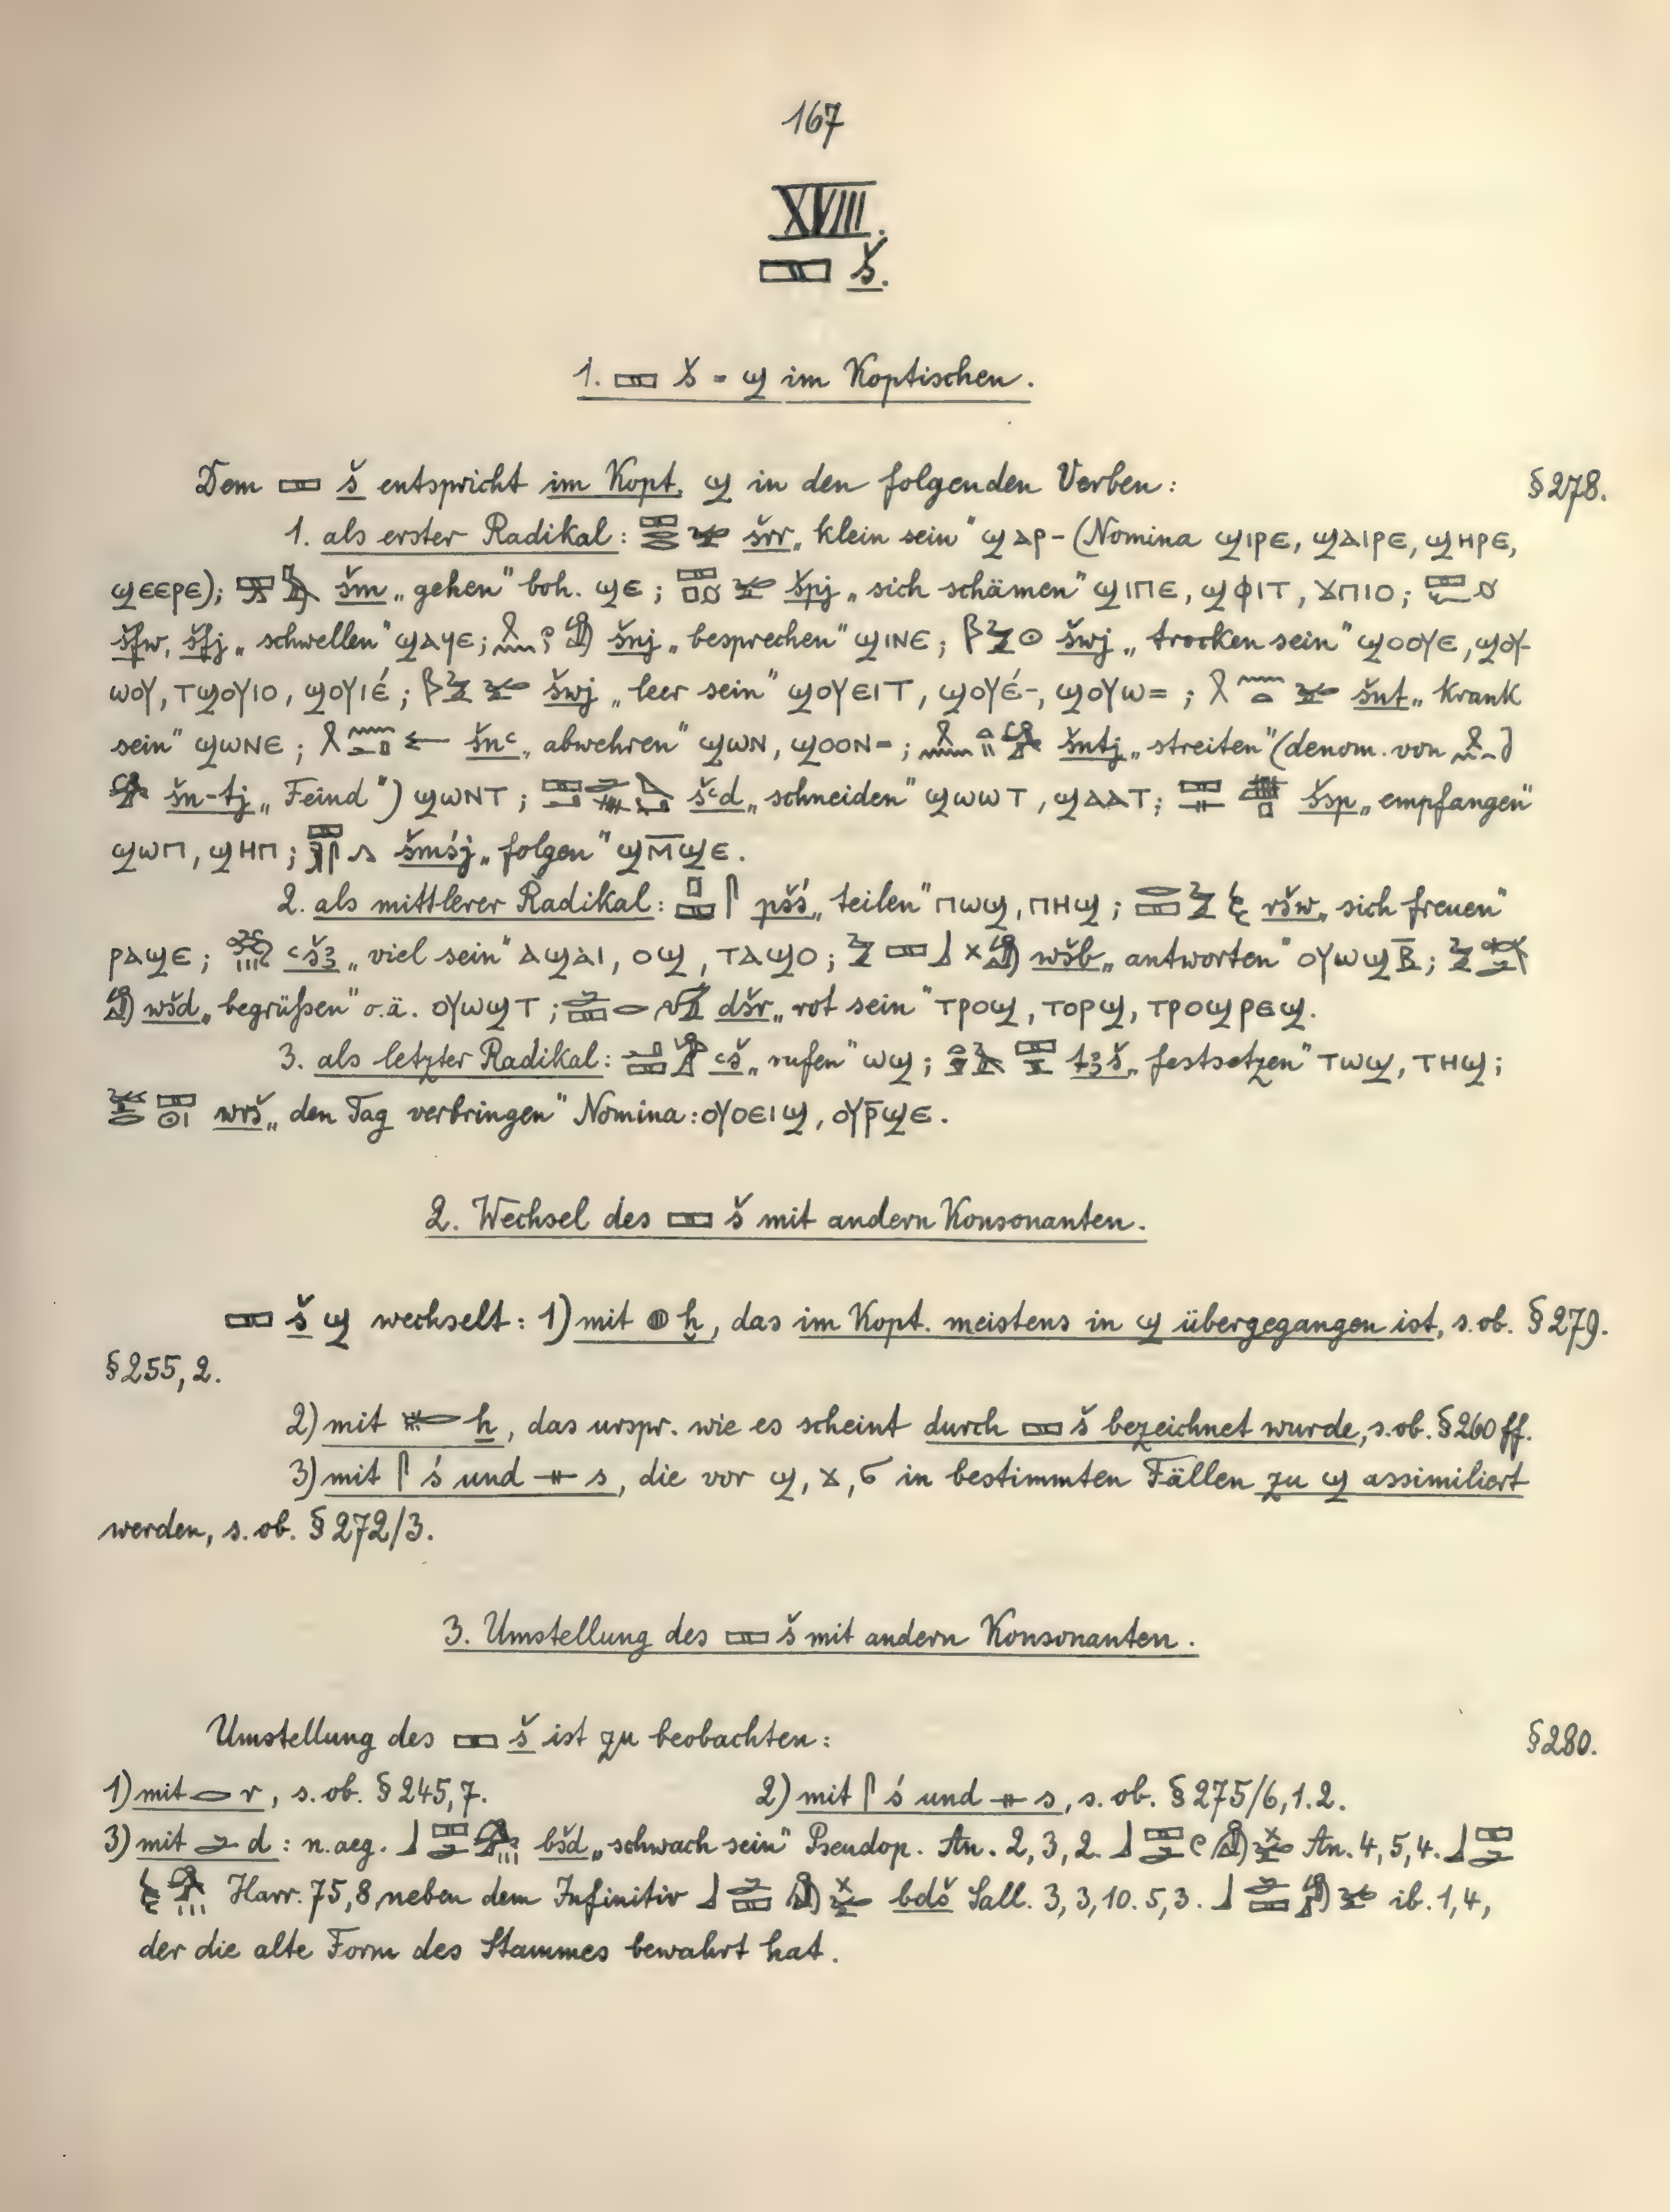 167
XVIII.
𓈙 š.
1. 𓈙 š = ϣ im Koptischen.
Dem 𓈙 š entspricht im Kopt. ϣ in den folgenden Verben: §278.
1. als erster Radikal: šrr „klein sein“ ϣⲁⲣ- (Nomina ϣⲓⲣⲉ, ϣⲁⲓⲣⲉ, ϣⲏⲣⲉ,
ϣⲉⲉⲣⲉ); šm „gehen“ boh. ϣⲉ; špj „sich schämen“ ϣⲓⲡⲉ, ϣⲫⲓⲧ, ϫⲡⲓⲟ;
šfw, šfj „schwellen“ ϣⲁϥⲉ; šnj „besprechen“ ϣⲓⲛⲉ; šwj „trocken sein“ ϣⲟⲟⲩⲉ, ϣⲟⲩ-
ⲱⲟⲩ, ⲧϣⲟⲩⲓⲟ, ϣⲟⲩⲓⲉ́; šwj „leer sein“ ϣⲟⲩⲉⲓⲧ, ϣⲟⲩⲉ́-, ϣⲟⲩⲱ=; šnt „krank
sein“ ϣⲱⲛⲉ; šnꜥ „abwehren“ ϣⲱⲛ, ϣⲟⲟⲛ=; šntj „streiten“ (denom. von
šn-tj „Feind“) ϣⲱⲛⲧ; šꜥd „schneiden“ ϣⲱⲱⲧ, ϣⲁⲁⲧ; šsp „empfangen“
ϣⲱⲡ, ϣⲏⲡ; šmśj „folgen“ ϣⲙ̅ϣⲉ.
2. als mittlerer Radikal: pšś „teilen“ ⲡⲱϣ, ⲡⲏϣ; ršw „sich freuen“
ⲣⲁϣⲉ; ꜥšꜣ „viel sein“ ⲁϣⲁⲓ, ⲟϣ, ⲧⲁϣⲟ; wšb „antworten“ ⲟⲩⲱϣⲃ̅;
wšd „begrüßen“ o.ä. ⲟⲩⲱϣⲧ; dšr „rot sein“ ⲧⲣⲟϣ, ⲧⲟⲣϣ, ⲧⲣⲟϣⲣⲉϣ.
3. als letzter Radikal: ꜥš „rufen“ ⲱϣ; tꜣš „festsetzen“ ⲧⲱϣ, ⲧⲏϣ;
wrš „den Tag verbringen“ Nomina: ⲟⲩⲟⲉⲓϣ, ⲟⲩⲣ̅ϣⲉ.
2. Wechsel des 𓈙 š mit andern Konsonanten.
𓈙 š ϣ wechselt: 1) mit 𓐍 ḫ, das im Kopt. meistens in ϣ übergegangen ist, s. ob. §279.
§255,2.
2) mit 𓄡 ẖ, das urspr. wie es scheint durch 𓈙 š bezeichnet wurde, s. ob. §260 ff.
3) mit 𓋴 ś und 𓊃 s, die vor ϣ, ϫ, ϭ in bestimmten Fällen zu ϣ assimiliert
werden, s. ob. §272/3.
3. Umstellung des 𓈙 š mit andern Konsonanten.
Umstellung des 𓈙 š ist zu beobachten: §280.
1) mit 𓂋 r, s. ob. §245,7. 2) mit 𓋴 ś und 𓊃 s, s. ob. §275/6,1.2.
3) mit 𓂧 d: n.aeg. bšd „schwach sein“ Pseudop. An. 2,3,2. An. 4,5,4.
Harr. 75,8 neben dem Infinitiv bdš Sall. 3,3,10. 5,3. ib. 1,4,
der die alte Form des Stammes bewahrt hat.